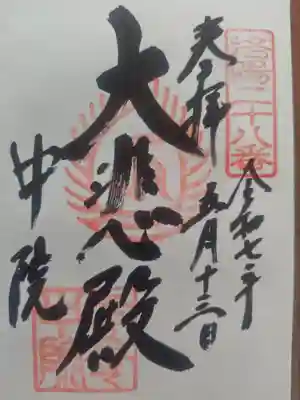 二十八番
令和七年
奉拝
五月十三日
大悲殿
中院